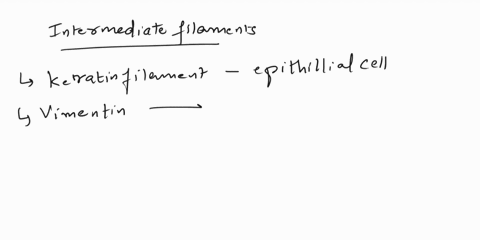 Intermediate filaments
↳ Keratin filament - epithillial cell
↳ Vimentin →